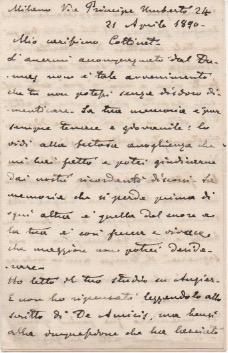 Milano Via Principe Umberto 24
21 Aprile 1890 -
Mio carissimo Cottinet -
L'avermi accompagnato dal Du-
mas non è tale avvenimento
che tu non potessi senza disdoro di-
menticare. La tua memoria è pur
sempre tenace e giovanile: lo
vidi alla festosa accoglienza che
mi hai fatto e potei giudicarne
dai nostri ricordanti discorsi. La
memoria che si perde prima di
ogni altra è quella del cuore e
la tua è così fresca e vivace
che maggiore non potrei deside-
rare -
Ho letto il tuo studio su Augier
e non ho ripensato leggendolo allo
scritto di De Amicis, ma bensì
alla che ha lasciato